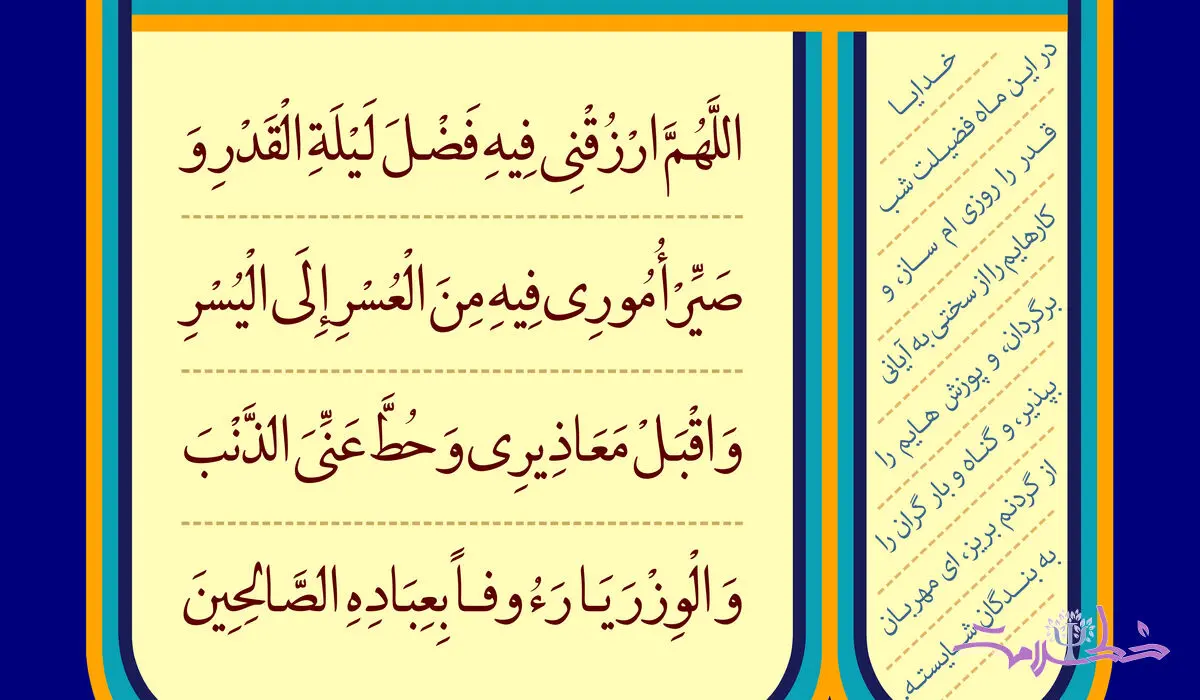 اللَّهُمَّ ارْزُقْنِی فِیهِ فَضْلَ لَیْلَةِ الْقَدْرِ وَ
صَیِّرْ أُمُورِی فِیهِ مِنَ الْعُسْرِ إِلَى الْیُسْرِ
وَ اقْبَلْ مَعَاذِیرِی وَ حُطَّ عَنِّیَ الذَّنْبَ
وَ الْوِزْرَ یَا رَءُوفاً بِعِبَادِهِ الصَّالِحِینَ
خدایا
در این ماه فضیلت شب
قدر را روزی ام ساز، و
کارهایم را از سختی به آیانی
برگردان، و پوزش هایم را
بپذیر، و گناه و بار گران را
از گردنم بریز، ای مهربان
به بندگان شایسته.
خط سلامت